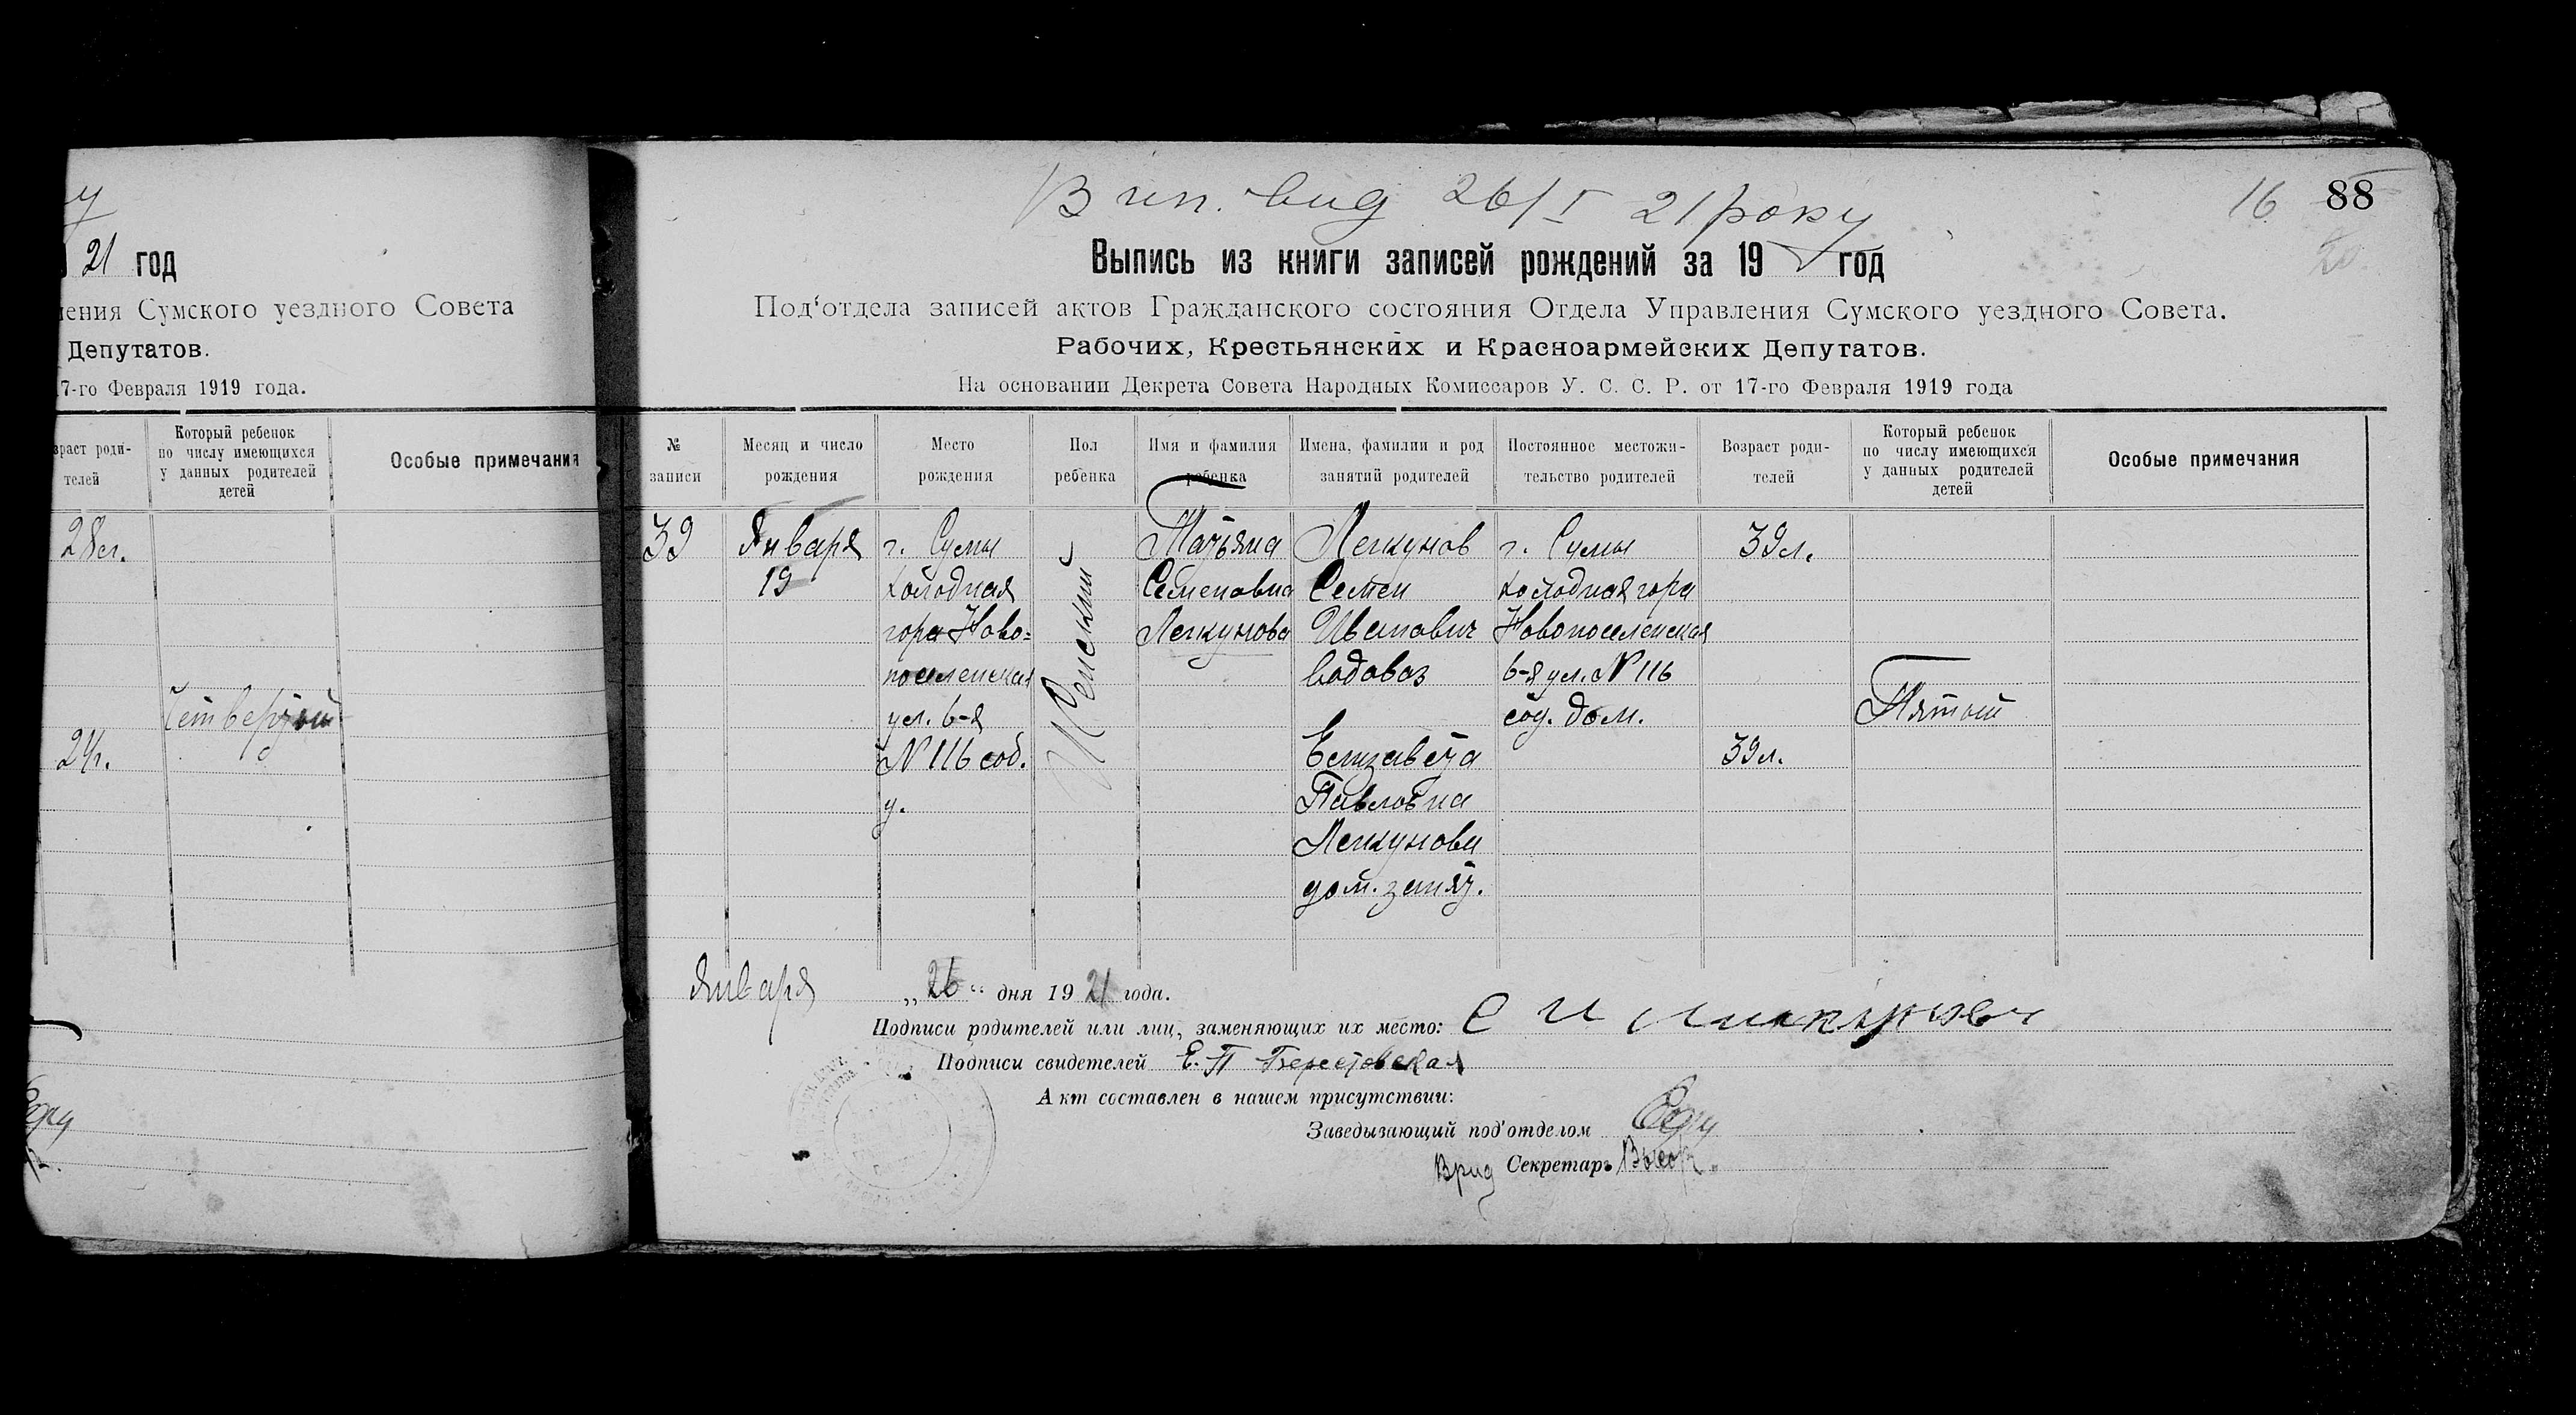 21 год
ления Сумского уездного Совета
Депутатов.
17-го Февраля 1919 года.
зраст роди-
телей
Который ребенок
по числу имеющихся
у данных родителей
детей
Особые примечания
28 л.
Четвертый
24 г.
Вип. вид 26/I 21 року
16 88
Выпись из книги записей рождений за 19 год
Под‘отдела записей актов Гражданского состояния Отдела Управления Сумского уездного Совета.
Рабочих, Крестьянских и Красноармейских Депутатов.
На основании Декрета Совета Народных Комиссаров У. С. С. Р. от 17-го Февраля 1919 года
№
записи
Месяц и число
рождения
Место
рождения
Пол
ребенка
Имя и фамилия
ребенка
Имена, фамилии и род
занятий родителей
Постоянное местожи-
тельство родителей
Возраст роди-
телей
Который ребенок
по числу имеющихся
у данных родителей
детей
Особые примечания
39
Января
19
г. Сумы
Холодная
гора Ново-
поселенская
ул. 6-я
№ 116 соб.
д.
Женский
Татьяна
Семеновна
Семен
Иванович
водовоз
Елизавета
Павловна
дом. занят.
г. Сумы
Холодная гора
Новопоселенская
6-я ул. № 116
соб. дом.
39 л.
39 л.
Пятый
Января „26“ дня 1921 года.
Подписи родителей или лиц, заменяющих их место: С И
Подписи свидетелей Е. П Берестовская
Акт составлен в нашем присутствии:
Заведызающий под‘отделом
Врид Секретарь